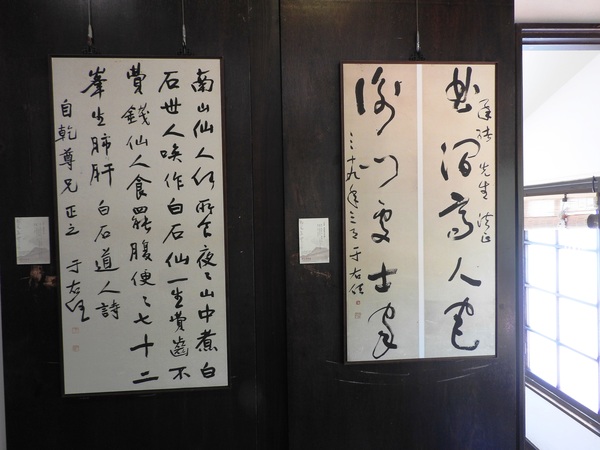 南山仙人何所食夜〻山中煮白
石世人喚作白石仙一生費齒不
費錢仙人食罷腹便〻七十二
峯生肺肝 白石道人詩
自乾尊兄 正之 于右任
曲澗高人宅
先生 法正
衡門處士家
三十九年三月 于右任